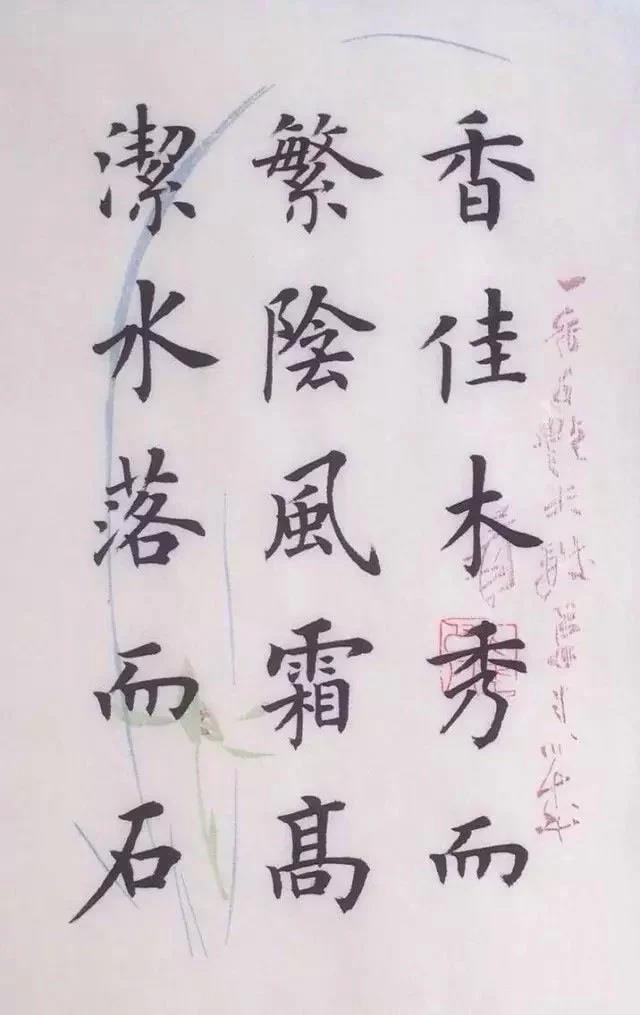 香佳木秀而
繁陰風霜高
潔水落而石